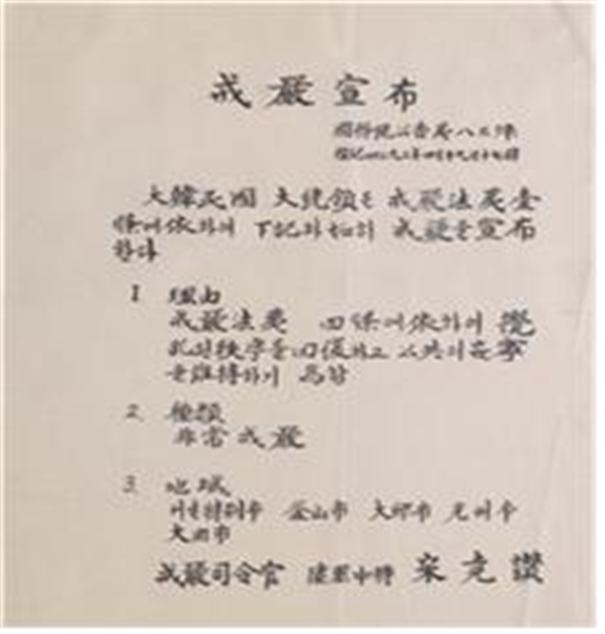 戒嚴宣布
國務院公告第八
檀紀四二九三年四月十九日十七時
大韓民國 大統領은 戒嚴法第壹
條에依하여 下記와如히 戒嚴을宣布
한다
1 理由
戒嚴法第 四條에依하여 攪
乱된秩序를回復하고 公共의安寧
을維持하기 爲함
2. 種類
非常戒嚴
3. 地域
서울特別市 釜山市 大邱市 光州市
大田市
戒嚴司令官 陸軍中將 宋堯讚